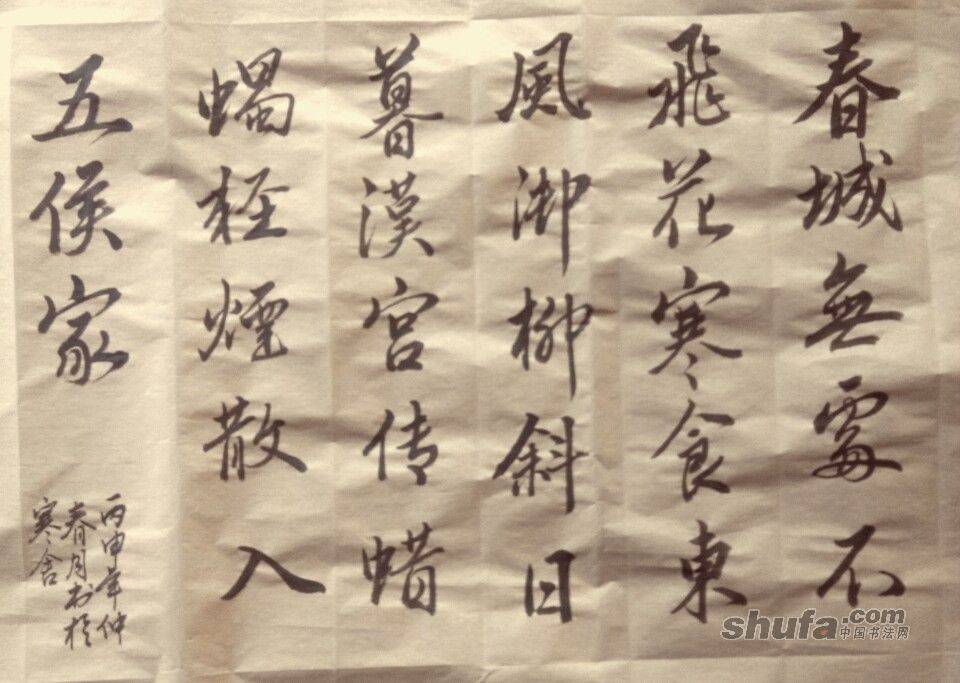 春城無處不
飛花寒食東
風御柳斜日
暮漢宫传蜡
蠋轻煙散入
五侯家
丙申年仲
春月书於
寒舍
shufa.com
中国书法网